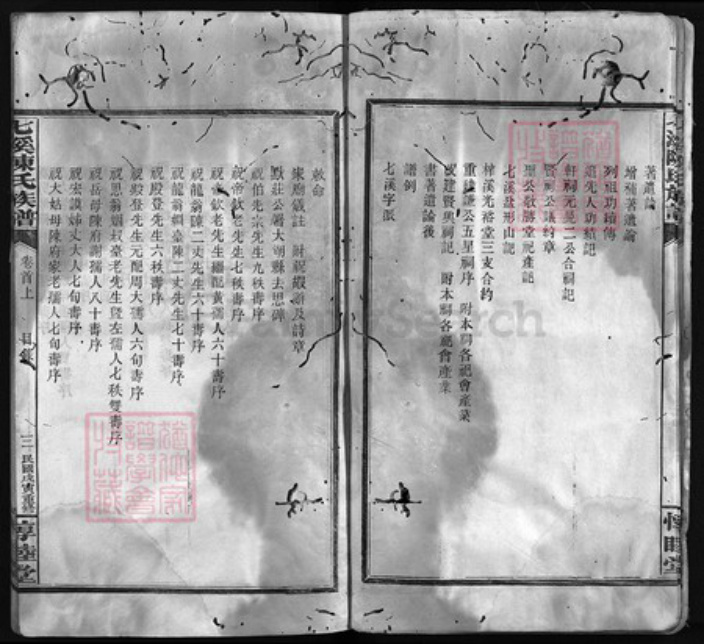 著遺論
增補著遺論
列祖功績傳
道先人功績記
軒祠元晃二公合祠記
賢祠公議約章
聖公敬勝堂祀產記
七溪盆形山記
梓溪光裕堂三支合約
重建謙公五星祠序 附本祠各祀會產業
或建賢與祠記 附本祠各祀會產業
書著遺論後
譜例
七溪字派
敕命
家廟儀註 附祝嘏新及詩章
默莊公署大朝縣去思碑
祝伯先宗先生九秩壽序
祝帝欽老先生七秩壽序
祝帝欽老先生繼配黃孺人六十壽序
祝龍翁陳二丈先生六十壽序
祝龍翁姻臺陳二丈先生七十壽序
祝殿登先生六秩壽序
祝殿登先生元配周大孺人六旬壽序
祝恩翁姻叔臺老先生暨左孺人七秩雙壽序
祝岳母陳府謝孺人八十壽序
祝宏謨姊丈大人七旬壽序
祝大姑母陳府家老孺人七旬壽序
七溪陳氏族譜
卷首上
目錄
三
民國戊寅重修
惇睦堂